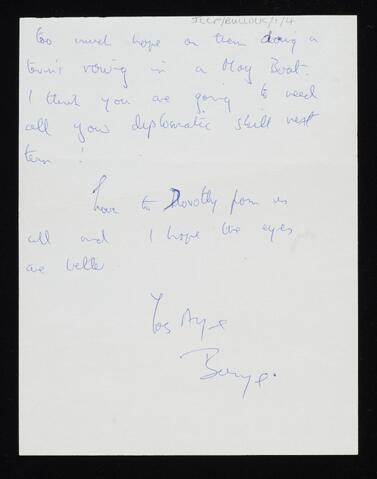 JCCP/BULLOUG/1/4
too much hope on them doing a
term's rowing in a May Boat.
I think you are going to need
all your diplomatic skill next
term !
Love to Dorothy from us
all and I hope the eyes
are better
Yrs Aye